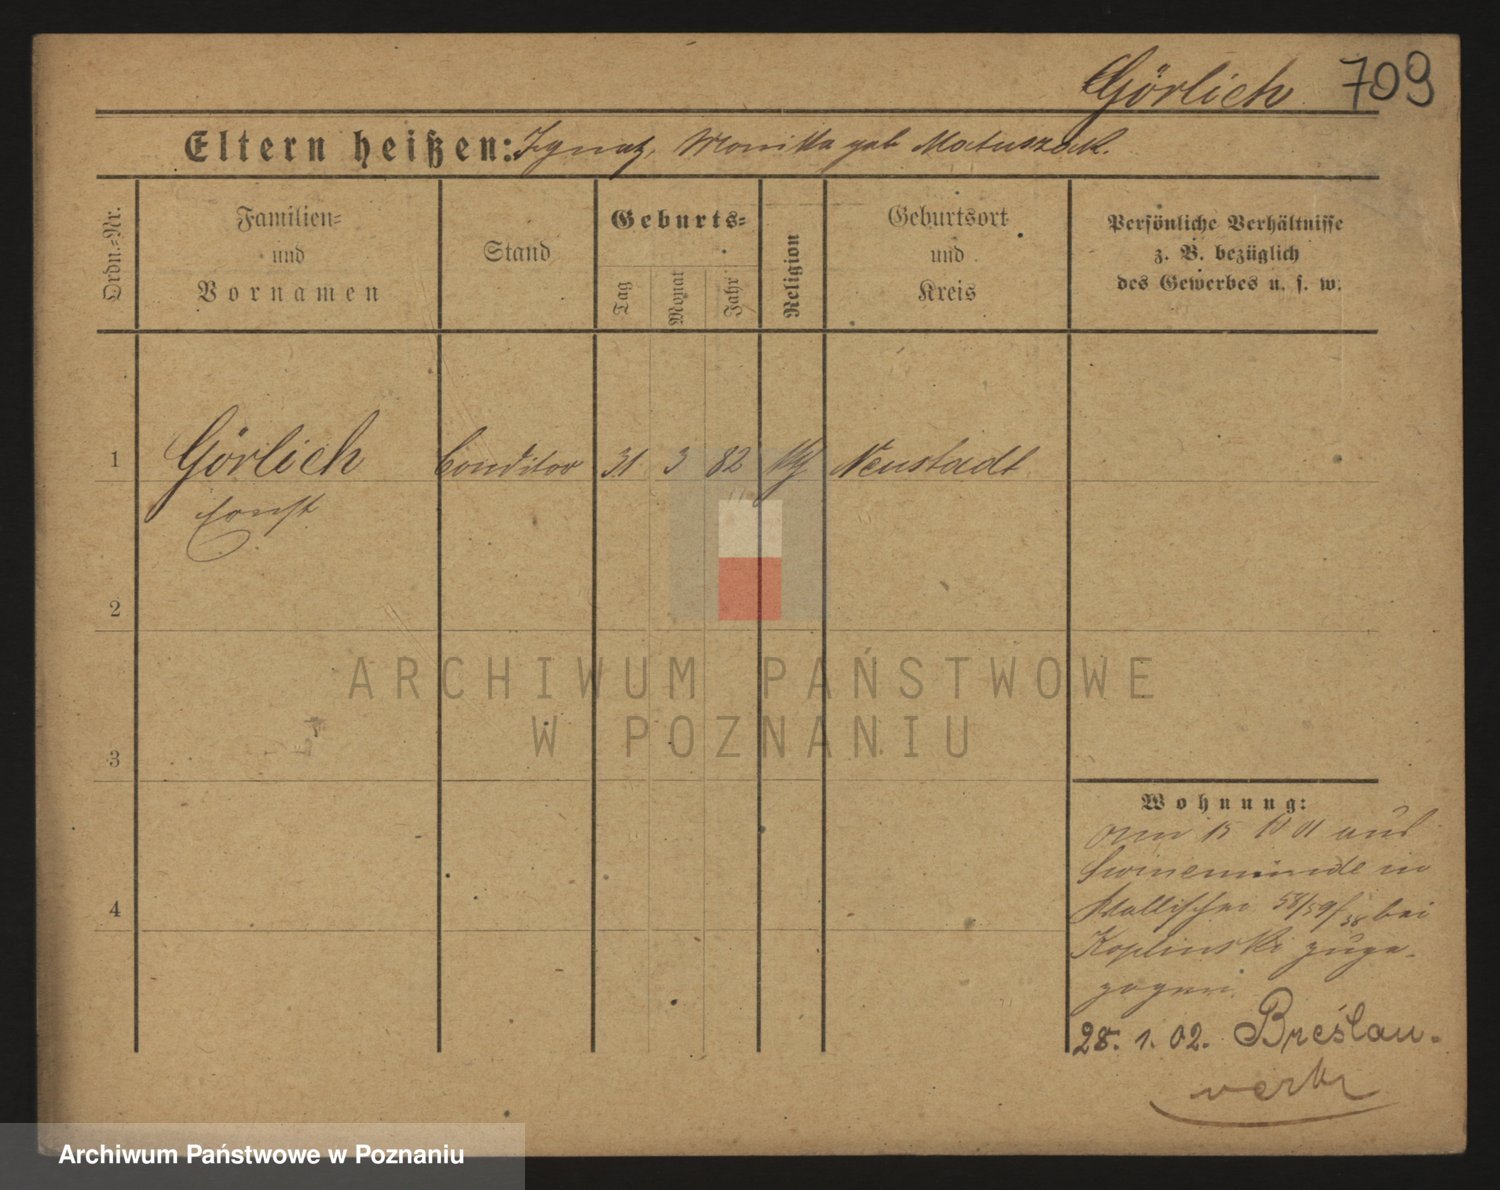 Görlich 709
Eltern heißen: Ignatz, Monika geb Matuszak.
Ordn.-Nr.
Familien-
und
Vornamen
Stand
Geburts-
Tag
Monat
Jahr
Religion
Geburtsort
und
Kreis
Persönliche Verhältnisse
z. B. bezüglich
des Gewerbes u. s. w.
1 Görlich Conditor 31 3 82 Neustadt
Ernst
2
3
4
Wohnung:
15 aus
Swinemünde in
Wallischei 58/59 bei
Koplinski zuge-
zogen.
28. 1. 02. Breslau.
ARCHIWUM PAŃSTWOWE
W POZNANIU
Archiwum Państwowe w Poznaniu